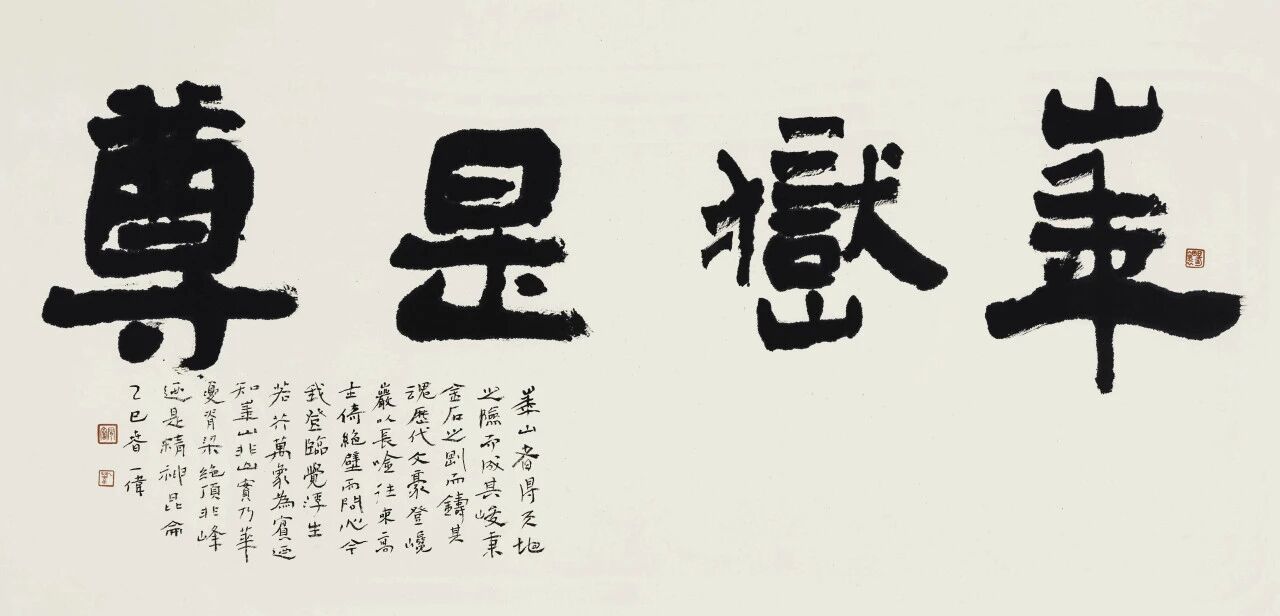 崋嶽是尊
崋山者得天地
之險而成其峻秉
金石之剛而鑄其
魂歷代文豪登巉
巖以長唫往來高
士倚絕壁而問心今
我登臨覺浮生
若芥萬象為賓迺
知崋山非山實乃華
夏脊梁絕頂非峰
迺是精神昆侖
乙巳春一偉